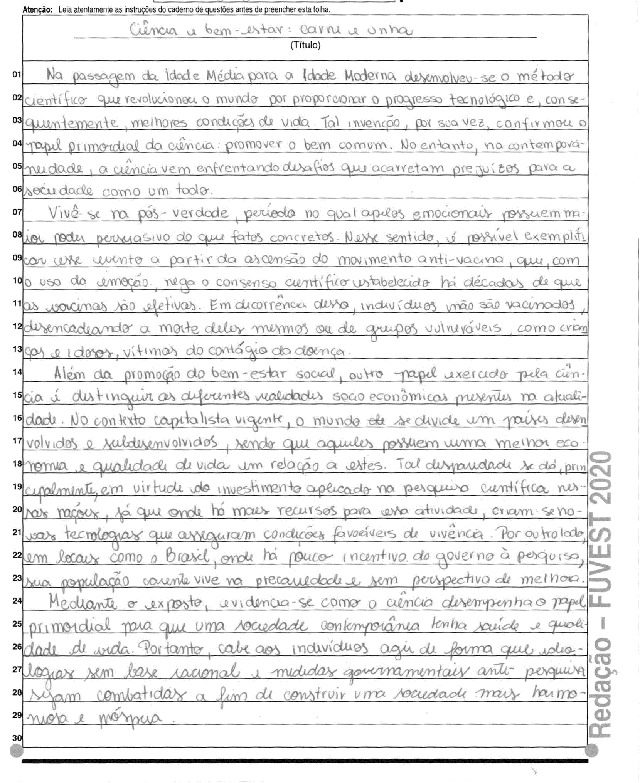 Atenção: Leia atentamente as instruções do caderno de questões antes de preencher esta folha.
Ciência e bem-estar: carne e unha
(Título)
01 Na passagem da Idade Média para a Idade Moderna desenvolveu-se o método
02 científico que revolucionou o mundo por proporcionar o progresso tecnológico e, conse-
03 quentemente, melhores condições de vida. Tal invenção, por sua vez, confirmou o
04 papel primordial da ciência: promover o bem comum. No entanto, na contempora-
05 neidade, a ciência vem enfrentando desafios que acarretam prejuízos para a
06 sociedade como um todo.
07 Vive-se na pós-verdade, período no qual apelos emocionais possuem ma-
08 ior poder persuasivo do que fatos concretos. Nesse sentido, é possível exemplifi-
09 car esse evento a partir da ascensão do movimento anti-vacina, que, com
10 o uso da emoção, nega o consenso científico estabelecido há décadas de que
11 as vacinas são efetivas. Em decorrência disso, indivíduos não são vacinados,
12 desencadeando a morte deles mesmos ou de grupos vulneráveis, como crian
13 ças e idosos, vítimas do contágio da doença.
14 Além da promoção do bem-estar social, outro papel exercido pela ciên-
15 cia é distinguir as diferentes realidades socioeconômicas presentes na atuali-
16 dade. No contexto capitalista vigente, o mundo se divide em países desen
17 volvidos e subdesenvolvidos, sendo que aqueles possuem uma melhor eco-
18 nomia e qualidade de vida em relação a estes. Tal disparidade se dá, prin
19 cipalmente, em virtude do investimento aplicado na pesquisa científica nes-
20 sas nações, já que onde há mais recursos para essa atividade, criam-se no-
21 vas tecnologias que asseguram condições favoráveis de vivência. Por outro lado,
22 em locais como o Brasil, onde há pouco incentivo do governo à pesquisa,
23 sua população carente vive na precariedade e sem perspectiva de melhora.
24 Mediante o exposto, evidencia-se como a ciência desempenha o papel
25 primordial para que uma sociedade contemporânea tenha saúde e quali-
26 dade de vida. Portanto, cabe aos indivíduos agir de forma que ideo-
27 logias sem base racional e medidas governamentais anti-pesquisa
28 sejam combatidas a fim de construir uma sociedade mais harmo-
29 niosa e próspera.
30
Redação – FUVEST 2020